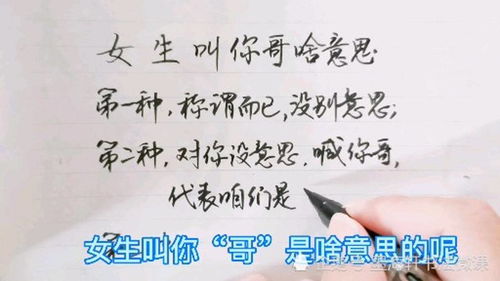 女生叫你哥啥意思
第一种，称谓而已，没别意思；
第二种，对你没意思，喊你哥，
代表咱们是
女生叫你“哥”是啥意思的呢